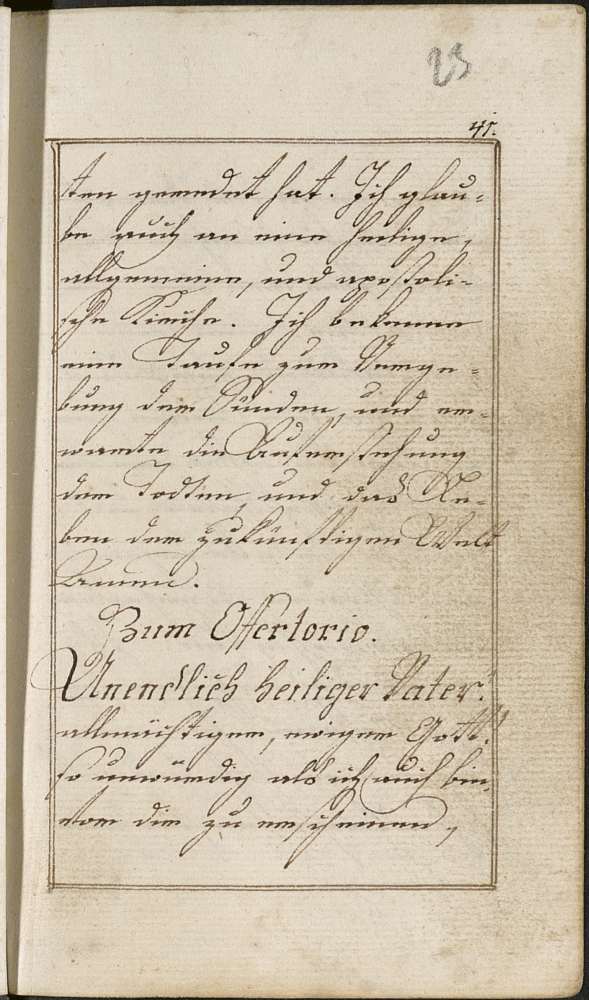 23
41.
ten geredet hat. Ich glau-
be auch an eine heilige,
allgemeine, und apostoli-
sche Kirche. Ich bekenne
eine Taufe zur Verge-
bung der Sünden, und er-
warte die Auferstehung
der Todten, und das Le-
ben der zukünftigen Welt
Amen.
Zum Offertorio.
Unendlich heiliger Vater!
allmächtiger, ewiger Gott!
so unwürdig als ich auch bin,
vor dir zu erscheinen,